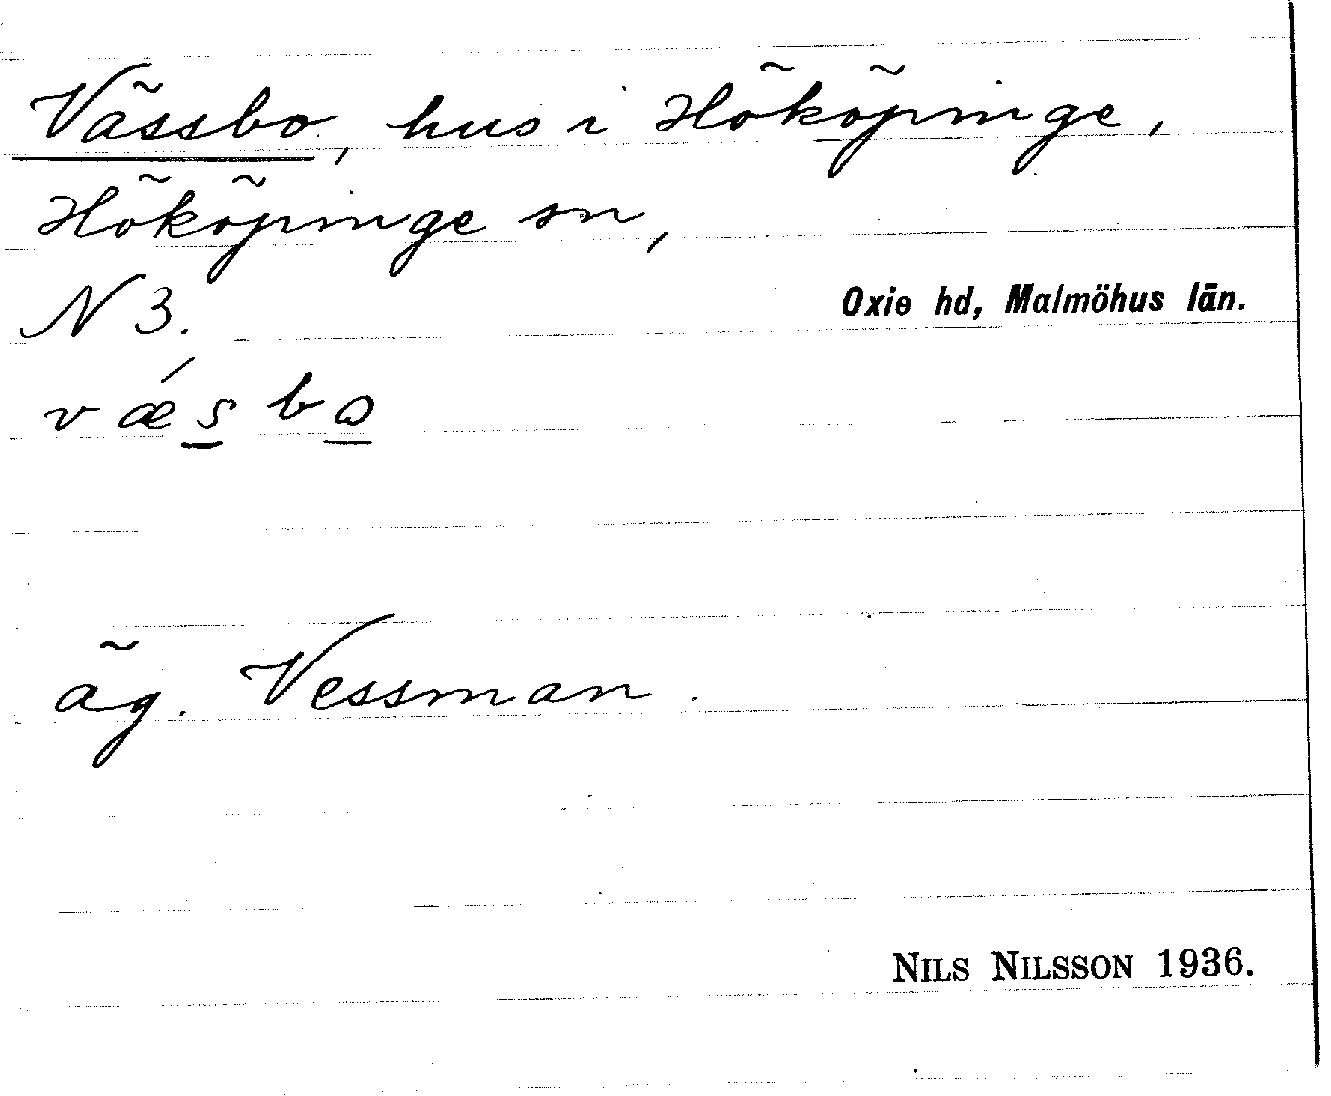 Vässbo, hus i Hököpinge,
Hököpinge sn,
N 3. Oxie hd, Malmöhus län.
væ´sbo
äg. Vessman.
NILS NILSSON 1936.